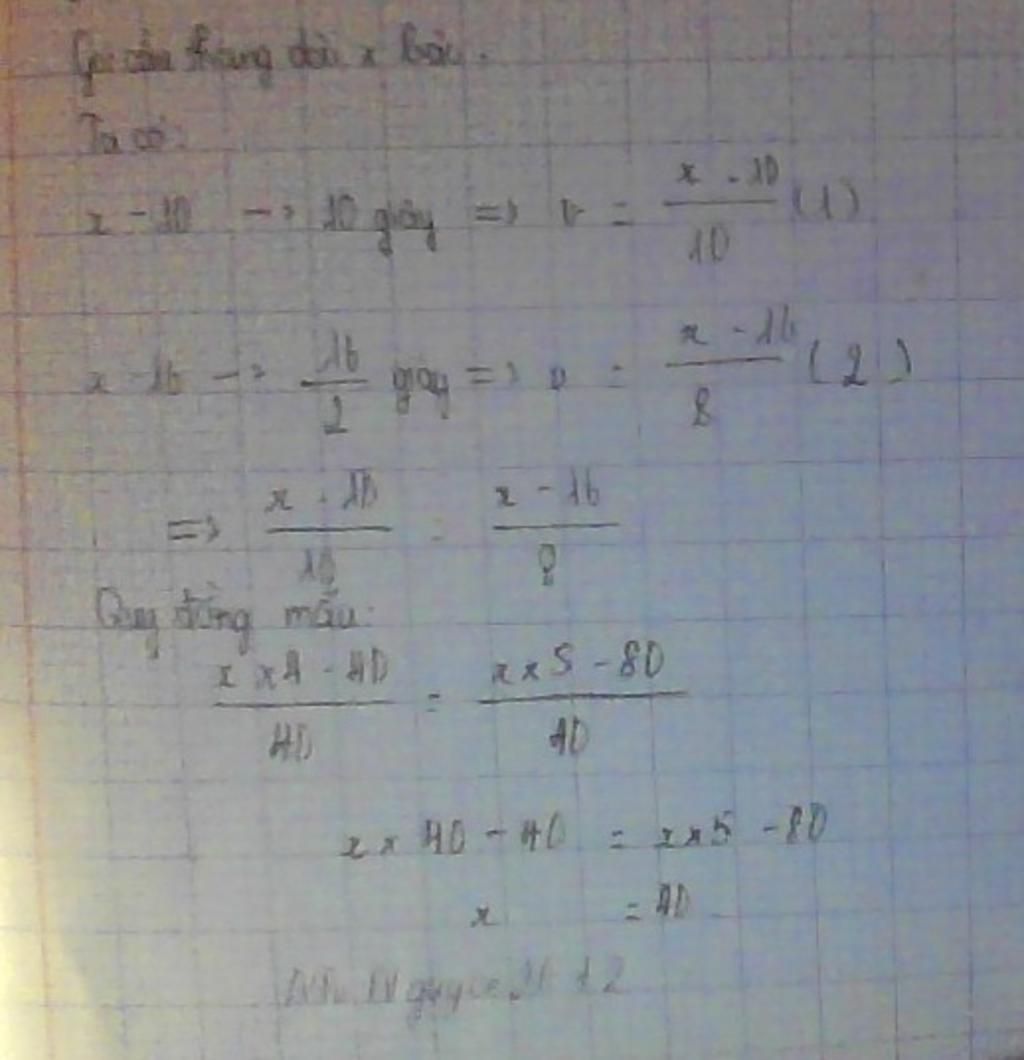 Gọi cầu thang dài x bậc.
Ta có:
x - 10 -> 10 giây => v = \frac{x - 10}{10} (1)
x - 16 -> \frac{16}{2} giây => v = \frac{x - 16}{8} (2)
=> \frac{x - 10}{10} = \frac{x - 16}{8}
Quy đồng mẫu:
\frac{x x 4 - 40}{40} = \frac{x x 5 - 80}{40}
x x 40 - 40 = x x 5 - 80
x = 40